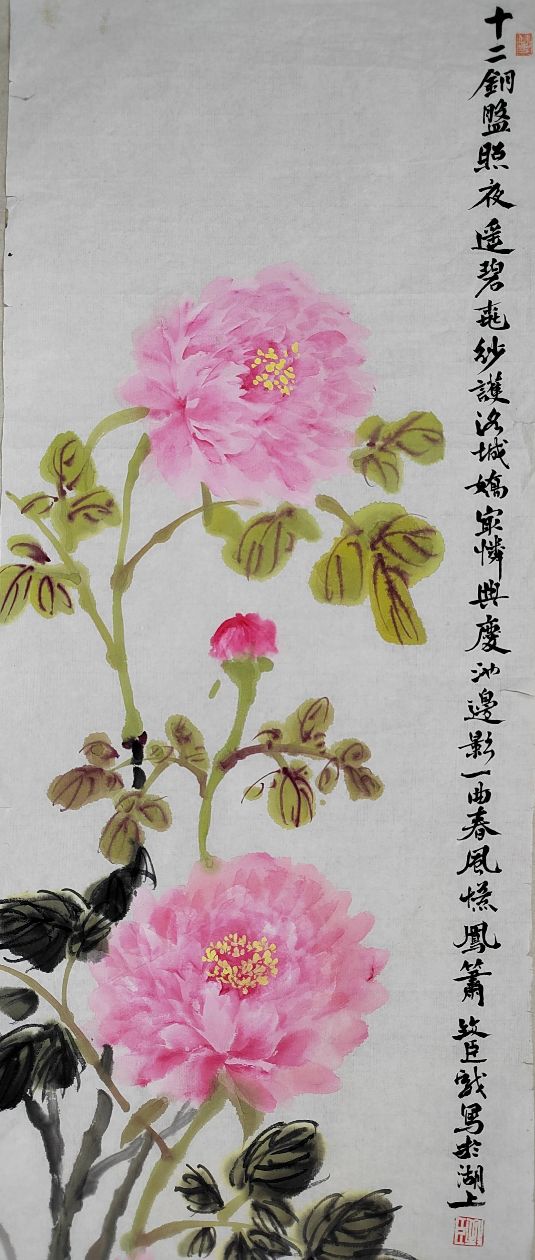 十二銅盤照夜遥碧𡘾紗護洛城嬌寂憐興慶池邊影一曲春風憶鳳簫 政臣戲寫於湖上